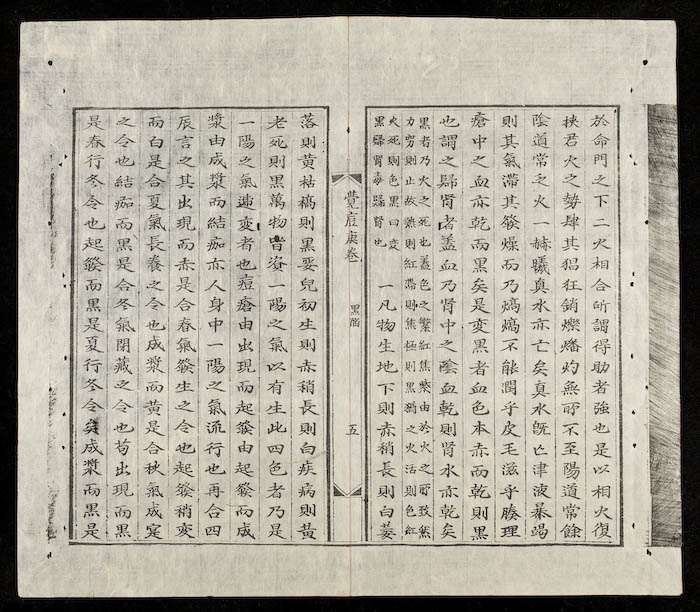 於命門之下二火相合所謂得助者強也是以相火復
挾君火之勢肆其猖狂銷爍燔灼無所不至陽道常餘
陰道常乏火一赫曦真水亦亡矣真水旣亡津液暴竭
則其氣滯其發燥而乃熇熇不能潤乎皮毛滋乎腠理
瘡中之血亦乾而黑矣是變黑者血色本赤而乾則黑
也謂之歸腎者蓋血乃腎中之陰血乾則腎水亦乾矣
黑者乃火之死也蓋色之紫紅焦紫由於火之所致紫
力窮則止故熱則紅滯則焦極則黑猶之火活則色紅
火死則色黑曰變
黑歸腎毒歸腎也
一凡物生地下則赤稍長則白萎
覺痘庚卷 黑陷 五
落則黃枯槁則黑嬰兒初生則赤稍長則白疾病則黃
老死則黑萬物皆資一陽之氣以有生此四色者乃是
一陽之氣遞变者也痘瘡由出現而起發由起發而成
漿由成漿而結痂亦人身中一陽之氣流行也再合四
辰言之其出現而赤是合春氣發生之令也起發稍变
而白是合夏氣長養之令也成漿而黃是合秋氣成寔
之令也結痂而黑是合冬氣閉藏之令也苟出現而黑
是春行冬令也起發而黑是夏行冬令矣成漿而黑是